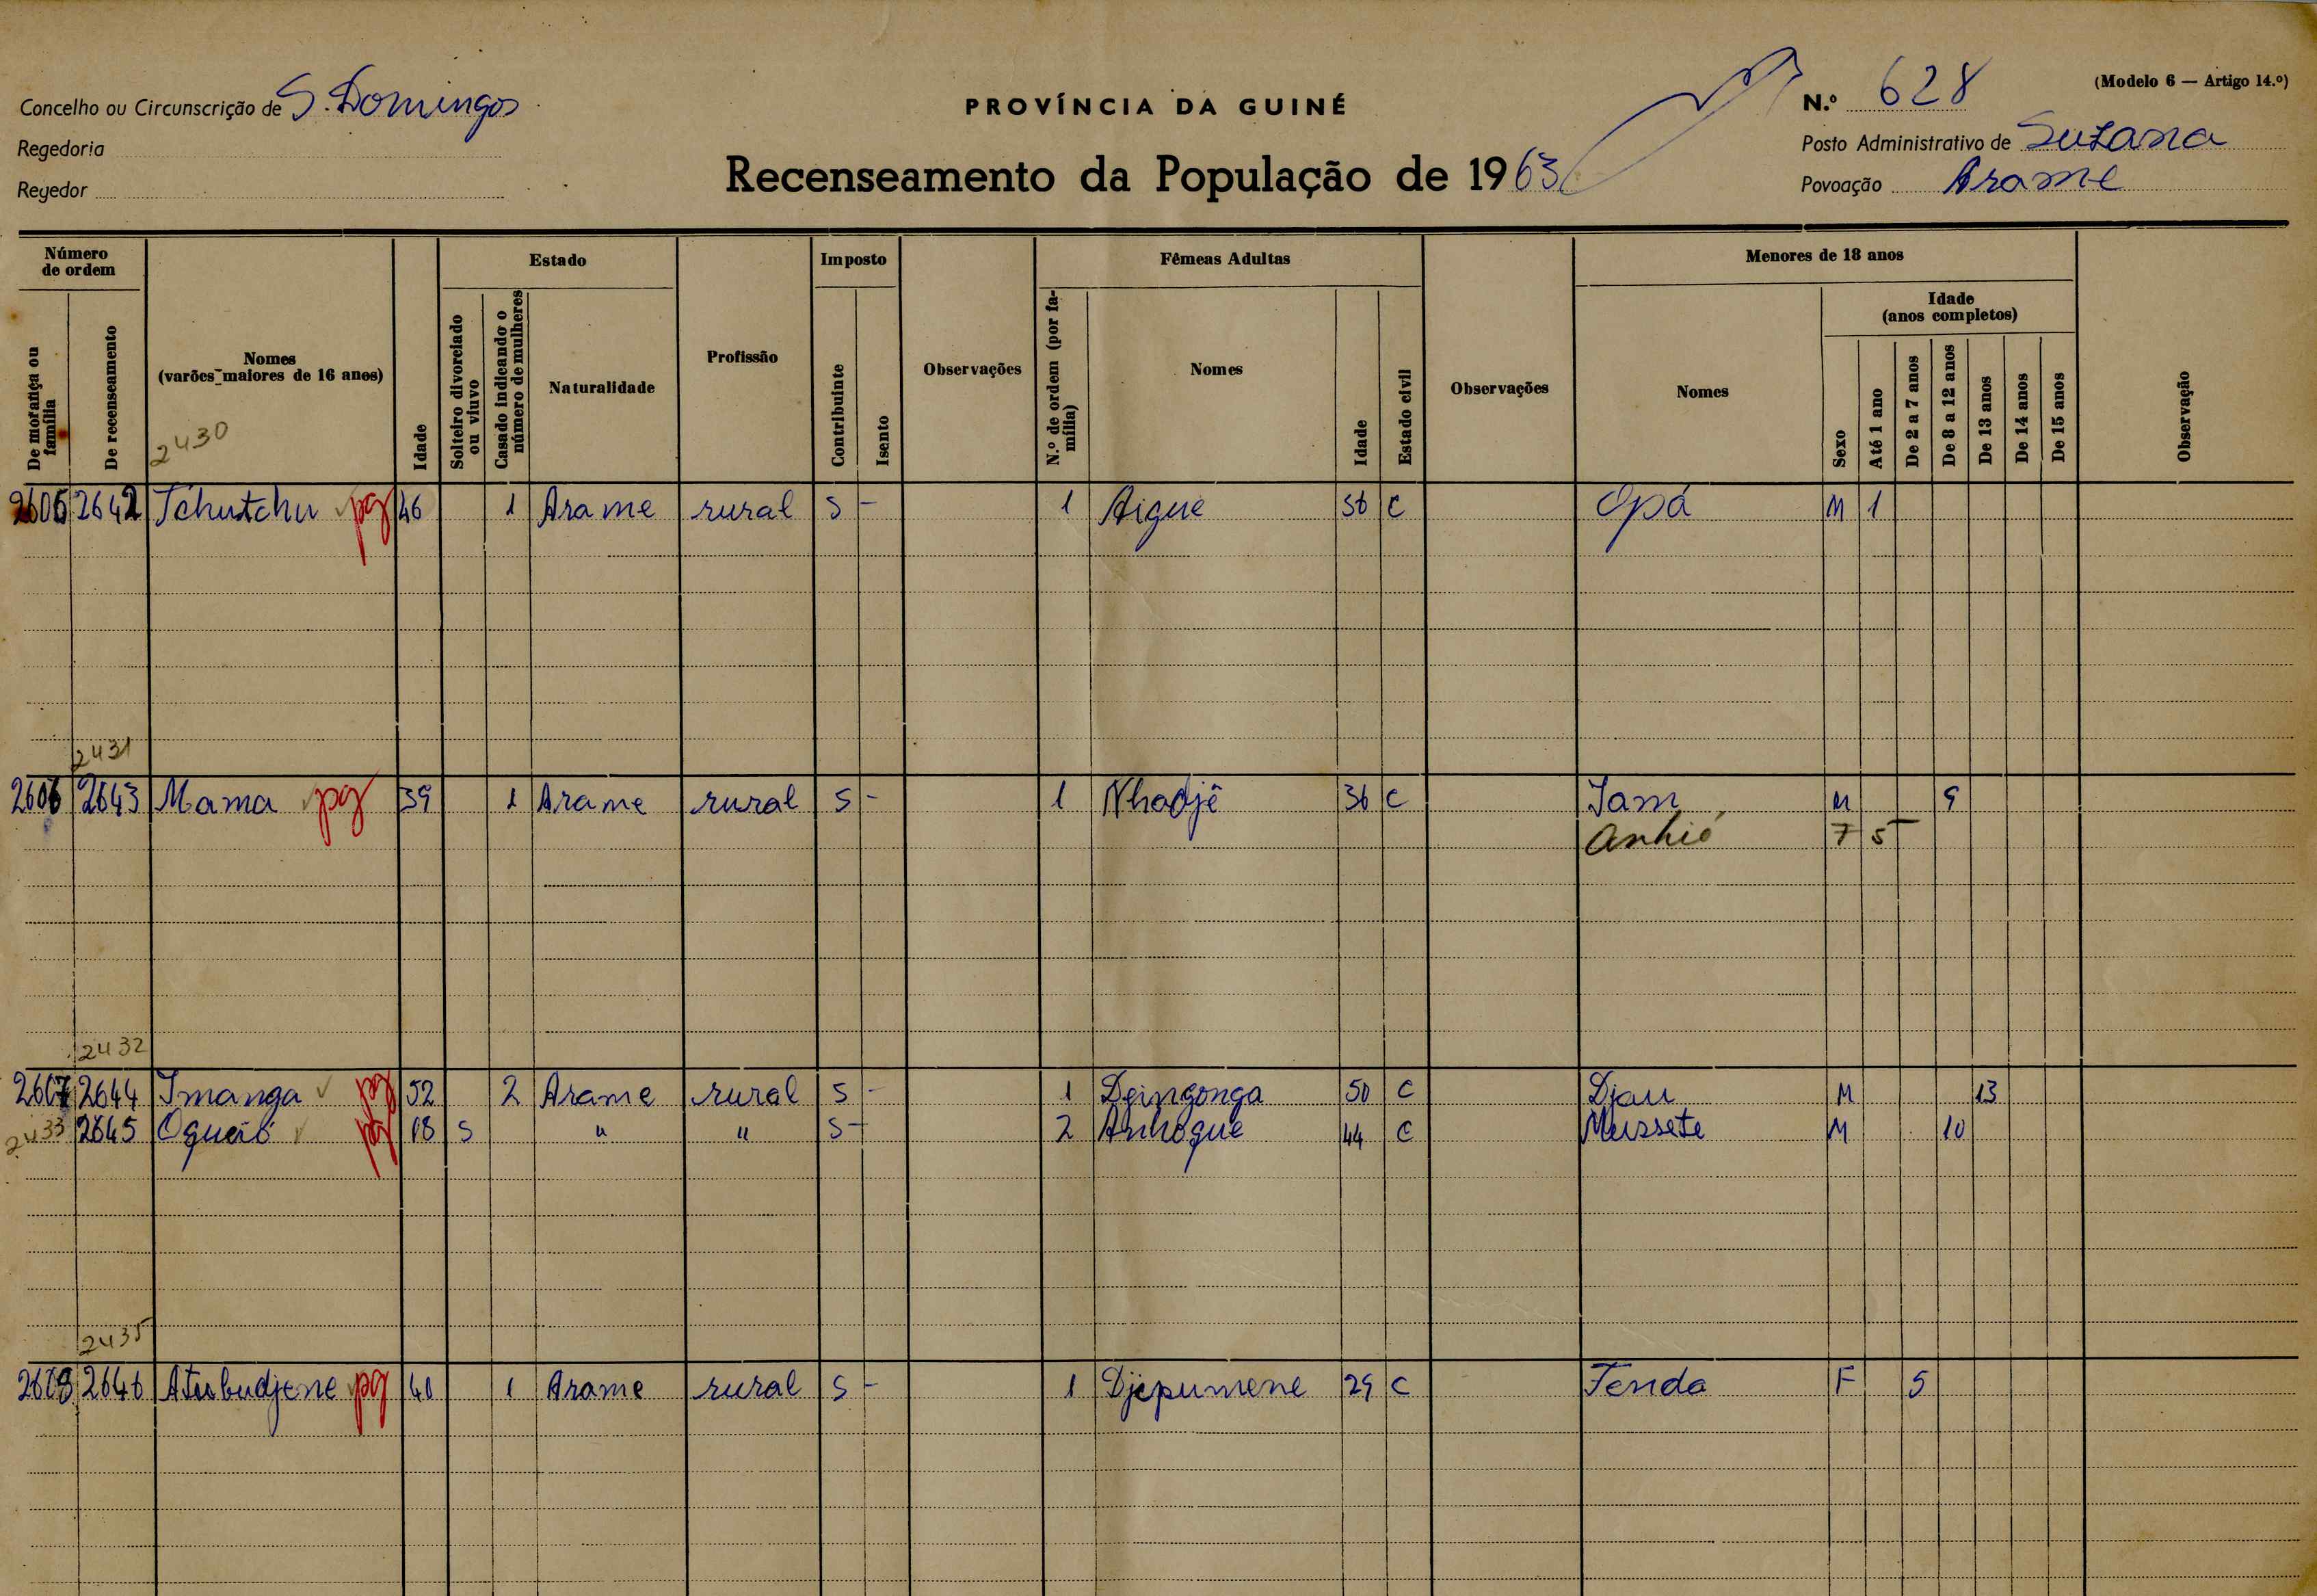 (Modelo 6 — Artigo 14.º)
Concelho ou Circunscrição de S. Domingos
PROVÍNCIA DA GUINÉ
N.º 628
Regedoria
Posto Administrativo de Suzana
Regedor
Recenseamento da População de 1963
Povoação Arame
Número de ordem
Estado
Imposto
Fêmeas Adultas
Menores de 18 anos
Idade (anos completos)
De morança ou família
De recenseamento
Nomes (varões maiores de 16 anos)
Idade
Solteiro divorciado ou viuvo
Casado indicando o número de mulheres
Naturalidade
Profissão
Contribuinte
Isento
Observações
N.º de ordem (por família)
Nomes
Idade
Estado civil
Observações
Nomes
Sexo
Até 1 ano
De 2 a 7 anos
De 8 a 12 anos
De 13 anos
De 14 anos
De 15 anos
Observação
2430
2605 2642 Tchutchu pg 46 1 Arame rural S - 1 Aigue 36 C Opá M 1
2431
2606 2643 Mama pg 39 1 Arame rural S - 1 Nhadjê 36 C Jam M 9
Anhió F 5
2432
2607 2644 Imanga pg 52 2 Arame rural S - 1 50 C Djau M 13
2433 2645 pg 18 S " " S - 2 Anhogue 44 C Mussete M 10
2435
2608 2646 pg 40 1 Arame rural S - 1 Djepumene 29 C Tenda F 5